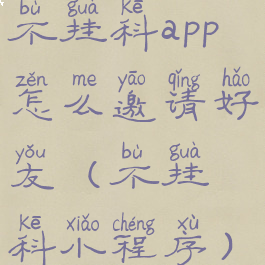 bù guà kē
不挂科app
zěn me yāo qǐng hǎo
怎么邀请好
yǒu bù guà
友（不挂
kē xiǎo chéng xù
科小程序）